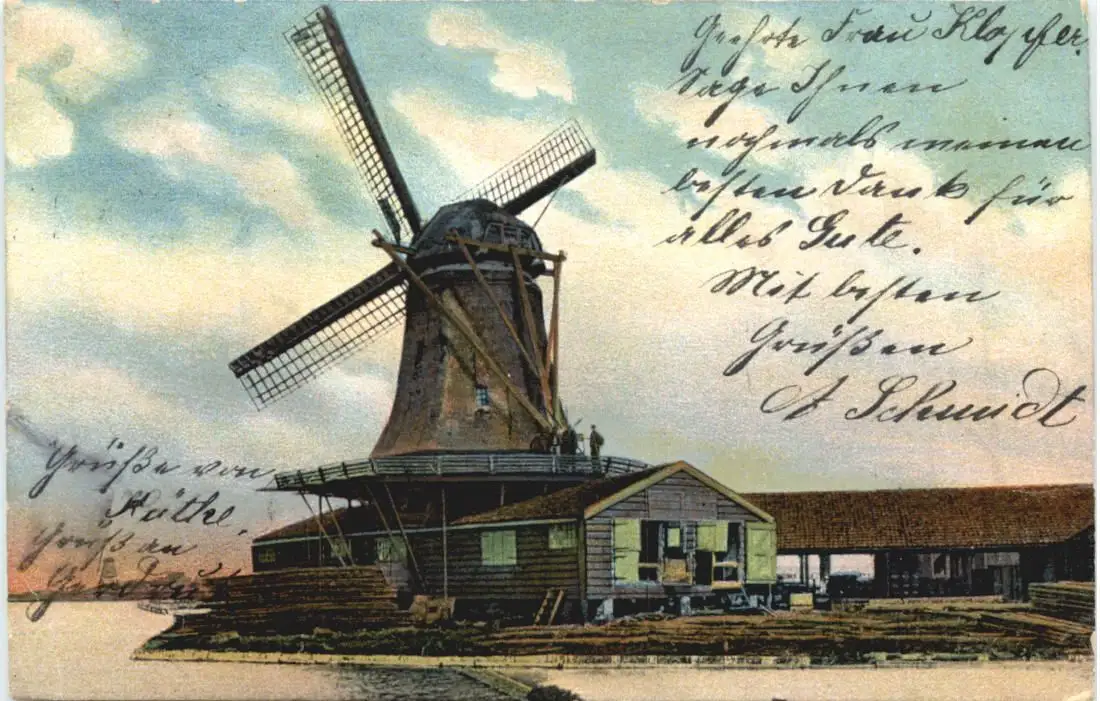 Geehrte Frau Klopfer.
Sage Ihnen
nochmals meinen
besten Dank für
alles Gute.
Mit besten
Grüßen
A Schmidt
Grüße von
Käthe.
Gruß an